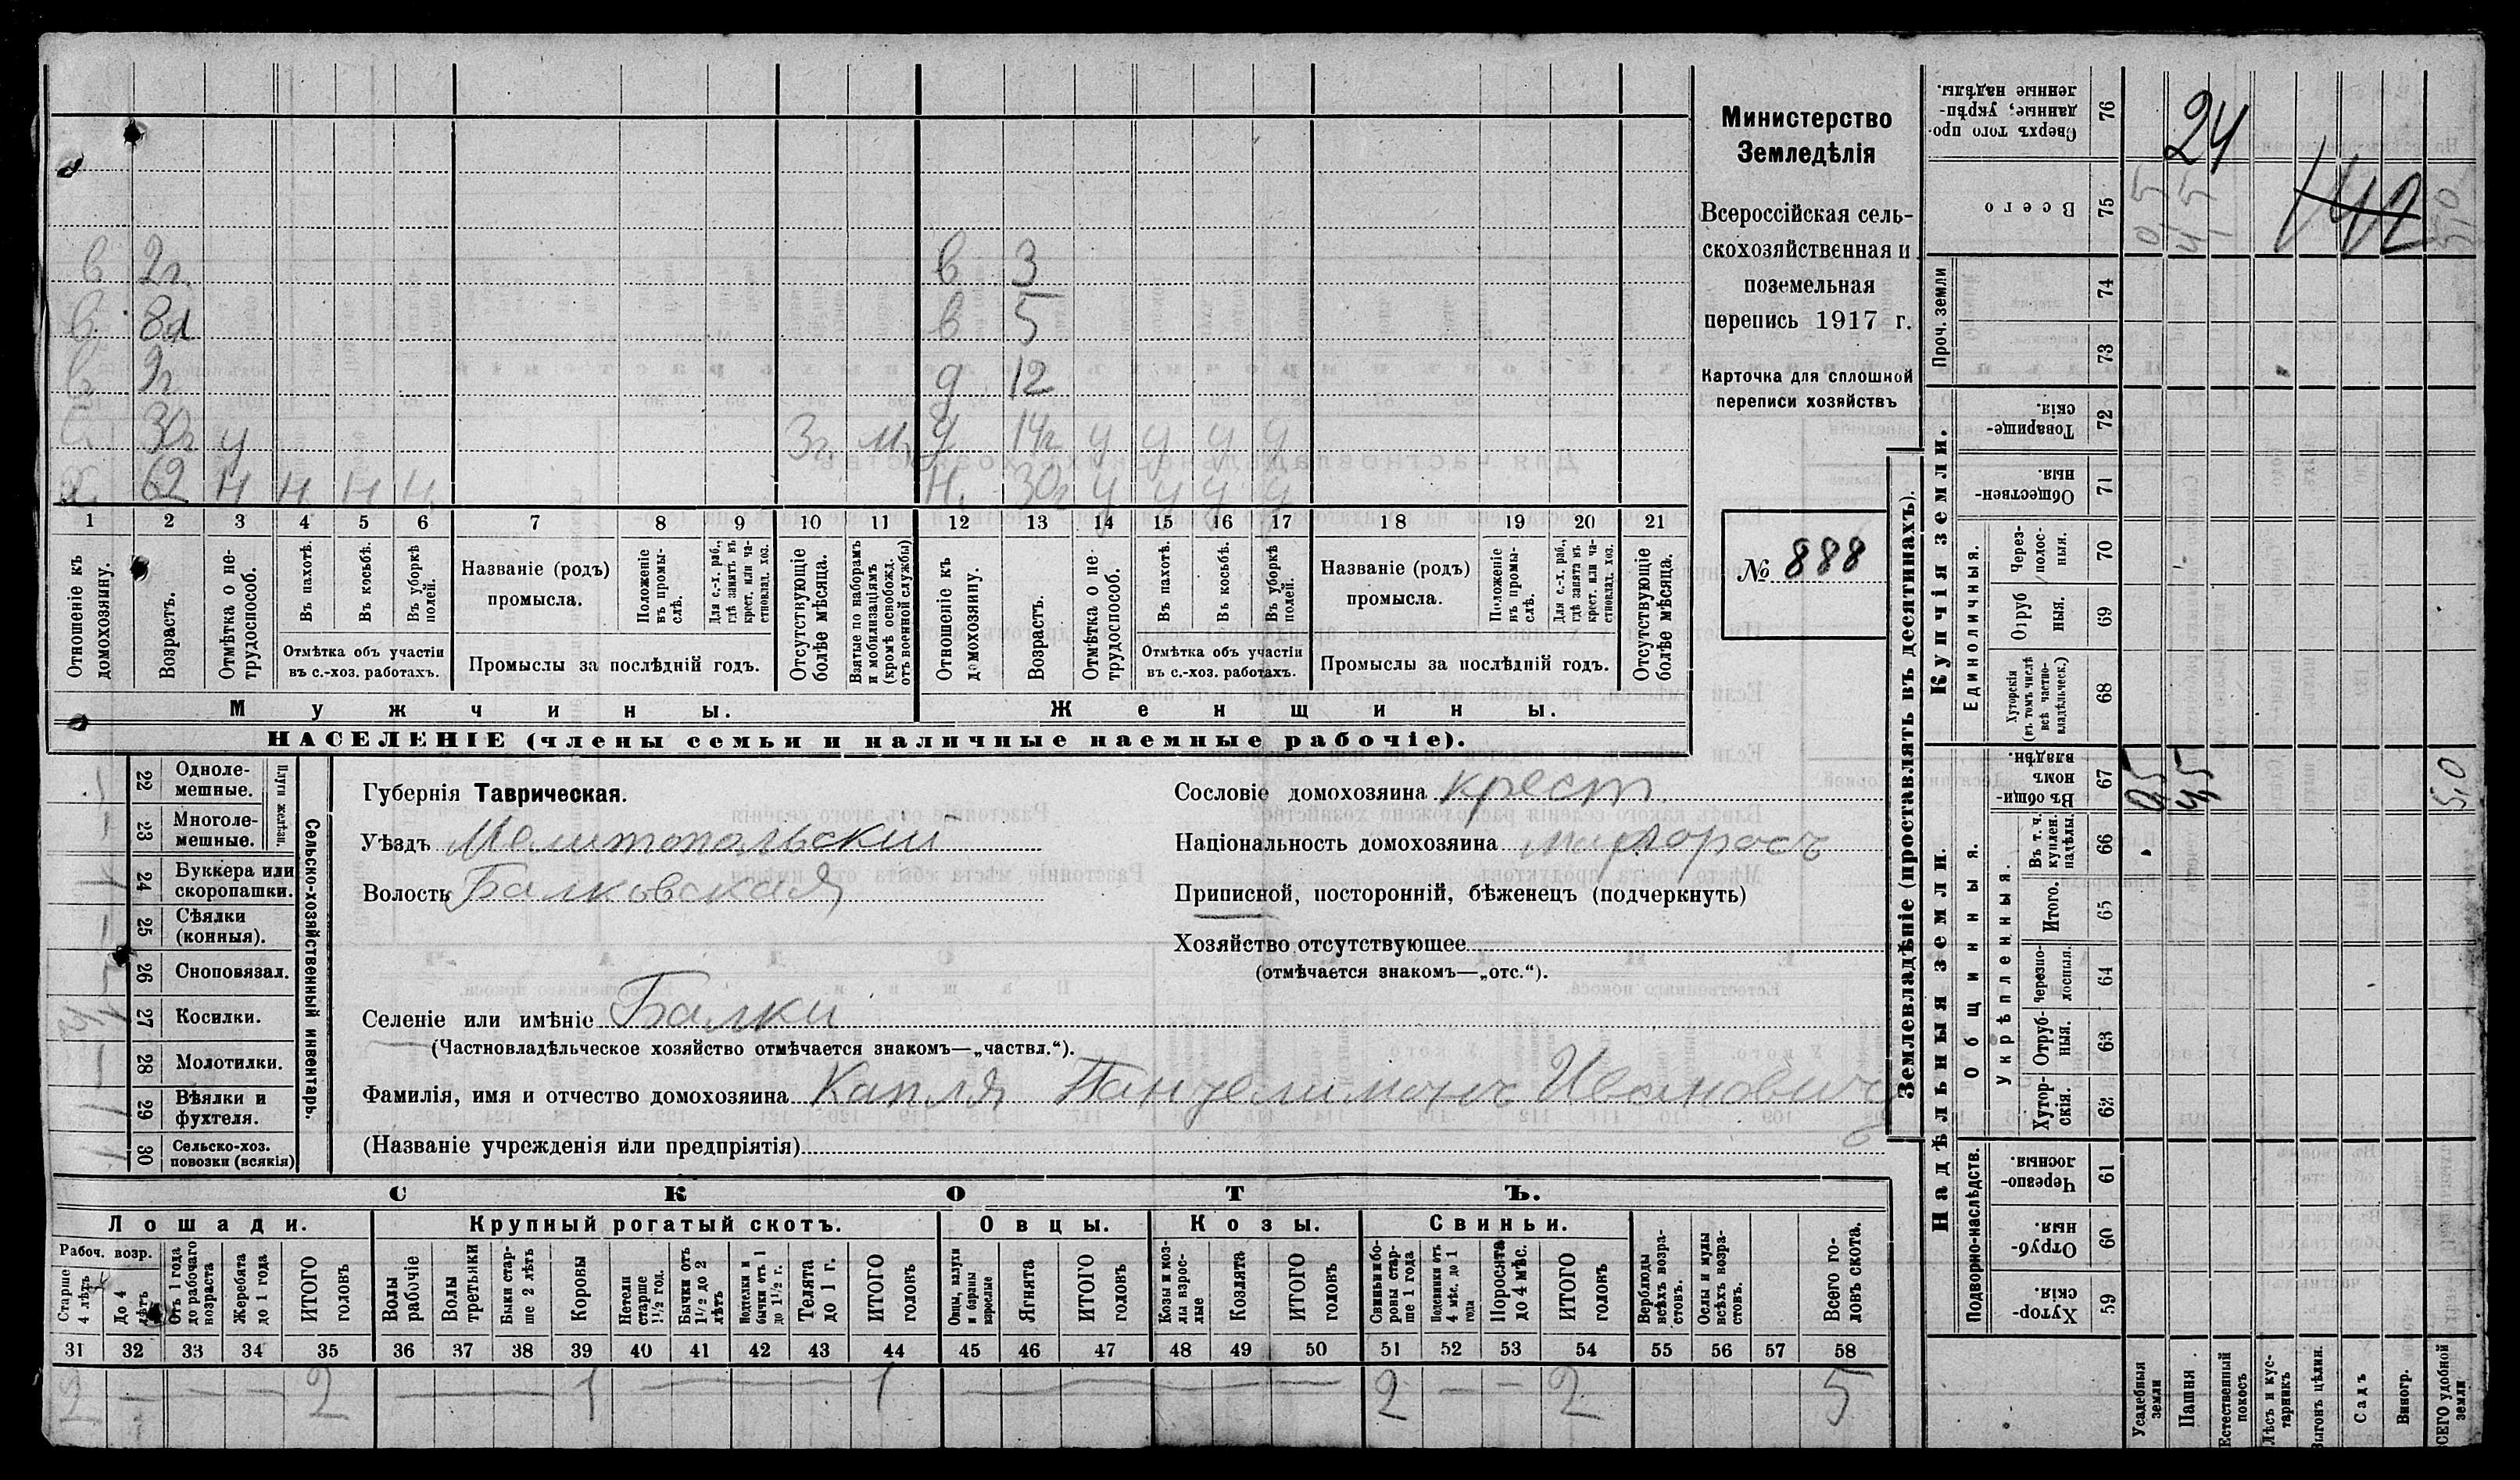 Министерство
Земледѣлія
Всероссійская сель-
скохозяйственная и
поземельная
перепись 1917 г.
Карточка для сплошной
переписи хозяйствъ
№ 888
в 2г.
в 8л
в 9г
С. 30г у 3г. м.
Х. 62 н н. н н.
в 3
в 5
д 12
д 14г у у у у
Н. 30г у у у у
1 2 3 4 5 6 7 8 9 10 11 12 13 14 15 16 17 18 19 20 21
Отношеніе къ домохозяину.
Возрастъ.
Отмѣтка о не-трудоспособ.
Въ пахотѣ.
Въ косьбѣ.
Въ уборкѣ полей.
Отмѣтка объ участіи
въ с.-хоз. работахъ.
Названіе (родъ)
промысла.
Положеніе въ промы-слѣ.
Для с.-х. раб., гдѣ занятъ въ крест. или ча-стновлад. хоз.
Промыслы за послѣдній годъ.
Отсутствующіе болѣе мѣсяца.
Взятые по наборамъ и мобилизаціямъ (кромѣ освобожд. отъ военной службы)
Отношеніе къ домохозяину.
Возрастъ.
Отмѣтка о не-трудоспособ.
Въ пахотѣ.
Въ косьбѣ.
Въ уборкѣ полей.
Отмѣтка объ участіи
въ с.-хоз. работахъ.
Названіе (родъ)
промысла.
Положеніе въ промы-слѣ.
Для с.-х. раб., гдѣ занята въ крест. или ча-стновлад. хоз.
Промыслы за послѣдній годъ.
Отсутствующіе болѣе мѣсяца.
Мужчины.
Женщины.
НАСЕЛЕНІЕ (члены семьи и наличные наемные рабочіе).
22 Одноле-мешные.
23 Многоле-мешные.
Плуги желѣзн.
24 Буккера или скоропашки.
25 Сѣялки (конныя).
26 Сноповязал.
27 Косилки.
28 Молотилки.
29 Вѣялки и фухтеля.
30 Сельско-хоз. повозки (всякія)
Сельско-хозяйственный инвентарь.
Губернія Таврическая.
Уѣздъ Мелитопольскій
Волость Балковская
Сословіе домохозяина крест.
Національность домохозяина малоросъ
Приписной, посторонній, бѣженецъ (подчеркнуть)
Хозяйство отсутствующее
(отмѣчается знакомъ—„отс.“).
Селеніе или имѣніе Балки
(Частновладѣльческое хозяйство отмѣчается знакомъ—„частвл.“).
Фамилія, имя и отчество домохозяина Капля Пантелимонъ Иванович
(Названіе учрежденія или предпріятія)
СКОТЪ.
Лошади. Крупный рогатый скотъ. Овцы. Козы. Свиньи.
Рабоч. возр.
Старше 4 лѣтъ
До 4 лѣтъ
Отъ 1 года до рабочаго возраста
Жеребята до 1 года
ИТОГО головъ
Волы рабочіе
Волы третьяки
Быки стар-ше 2 лѣтъ
Коровы
Нетели старше 1½ год.
Бычки отъ 1½ до 2 лѣтъ
Подтелки и бычки отъ 1 до 1½ г.
Телята до 1 г.
ИТОГО головъ
Овцы, валухи и бараны взрослые
Ягнята
ИТОГО головъ
Козы и коз-лы взрос-лые
Козлята
ИТОГО головъ
Свиньи и бо-ровы стар-ше 1 года
Подсвинки отъ 4 мѣс. до 1 года
Поросята до 4 мѣс.
ИТОГО головъ
Верблюды всѣхъ возра-стовъ.
Ослы и мулы всѣхъ возра-стовъ.
Всего го-ловъ скота.
31 32 33 34 35 36 37 38 39 40 41 42 43 44 45 46 47 48 49 50 51 52 53 54 55 56 57 58
2 — — — 2 — 1 — 1 — 2 — — 2 5
Землевладѣніе (проставлять въ десятинахъ).
Купчія земли.
Надѣльныя земли.
Сверхъ того про-данные, укрѣп-ленные надѣлы. 76
24
Всего 75
0,5 4,5 142 5,0
Проч. земли 74
73
Товарище-скія. 72
Обществен-ныя 71
Единоличныя.
Через-полос-ныя. 70
Отруб ныя. 69
Хуторскія (въ томъ числѣ всѣ частно-владѣльческ.) 68
Общинныя.
Въ общи-номъ владѣн. 67
0,5 4,5 5,0
Укрѣпленныя.
Въ т. ч. куплен. надѣлы. 66
Итого. 65
Черезпо-лосныя. 64
Отруб-ныя. 63
Хутор-скія. 62
Подворно-наслѣдств.
Черезпо-лосныя. 61
Отруб-ныя. 60
Хутор-скія. 59
Усадебныя земли
Пашня
Естественный покосъ
Лѣсъ и кус-тарникъ
Выгонъ цѣлин.
Садъ
Виногр.
СЕГО удобной земли